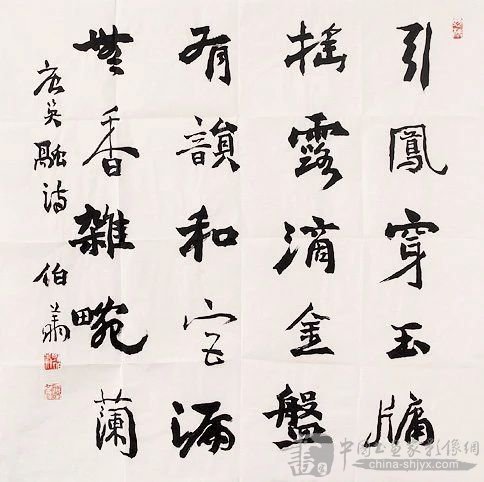 引鳳穿玉牗
摇露滴金盤
有韻和宫漏
無香雜畹蘭
唐吴融诗 伯萧
中国书画家影像網
china-shjyx.com